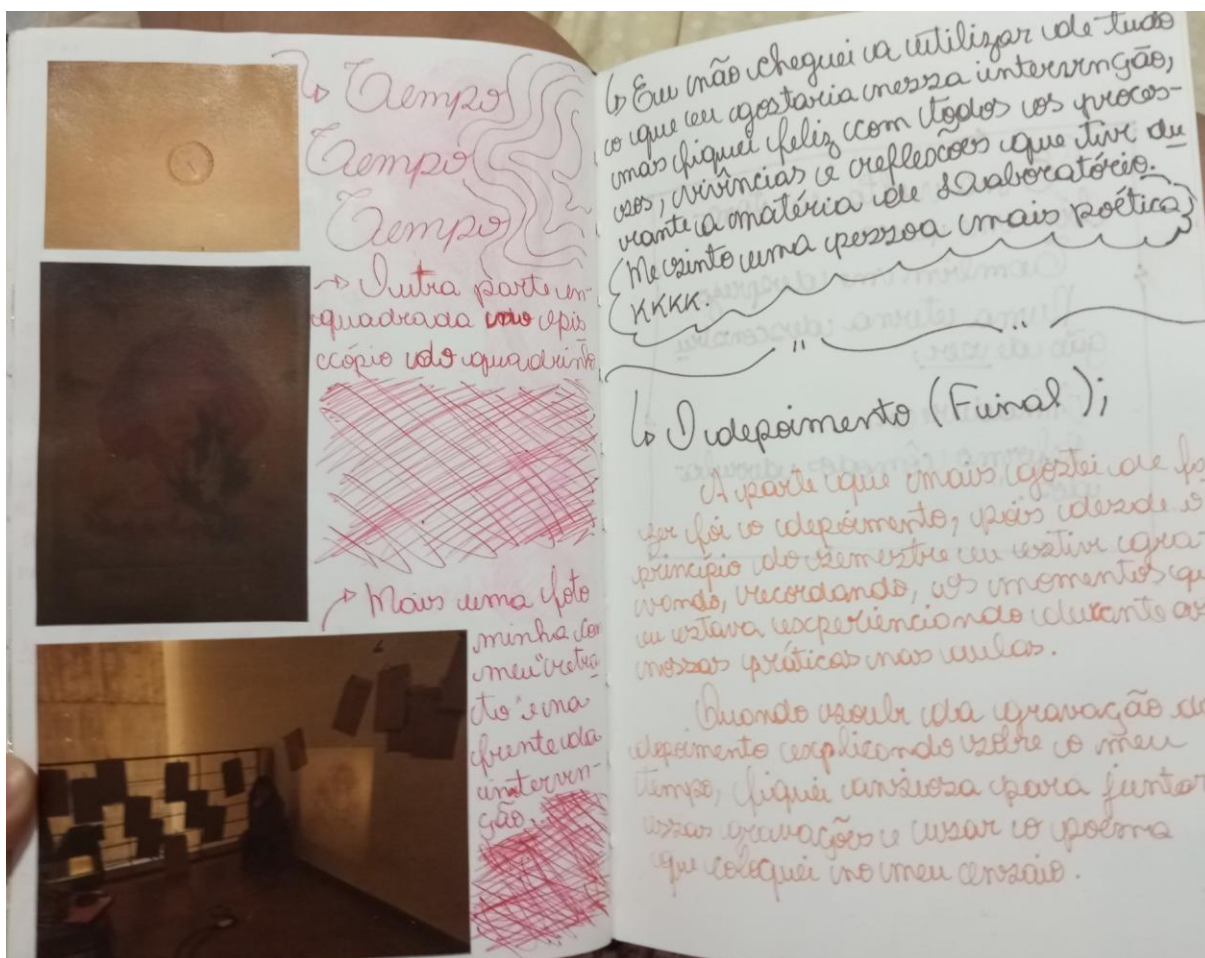 ↳ Tempo
Tempo
Tempo
→ Outra parte en-
quadrada no epis
cópio do quadrinho
→ Mais uma foto
minha com
meu "retra
to" e na
frente da
interven-
ção.
↳ Eu não cheguei a utilizar de tudo
o que eu gostaria nessa intervenção,
mas fiquei feliz com todos os proces-
sos, vivências e reflexões que tive du
rante a matéria de Laboratório.
Me sinto uma pessoa mais poética
KKKK.
↳ O depoimento (Final);
A parte que mais gostei de fa
zer foi o depoimento, pois desde o
princípio do semestre eu estive gra-
vando, recordando, os momentos que
eu estava experienciando durante as
nossas práticas nas aulas.
Quando soube da gravação do
depoimento explicando sobre o meu
tempo, fiquei ansiosa para juntar
essas gravações e usar o poema
que coloquei no meu ensaio.